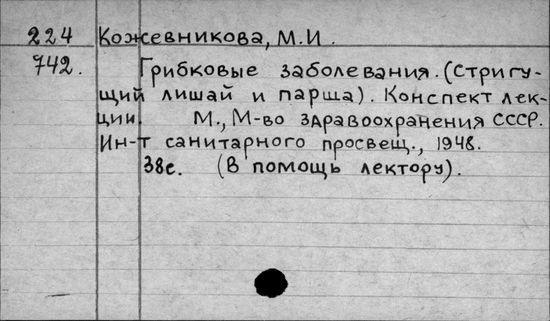 224 Кожевникова, М.И.
742. Грибковые заболевания. (Стригу-
щий лишай и парша). Конспект лек-
ции. М., М-во здравоохранения СССР.
Ин-т санитарного просвещ., 1948.
38с. (В помощь лектору).